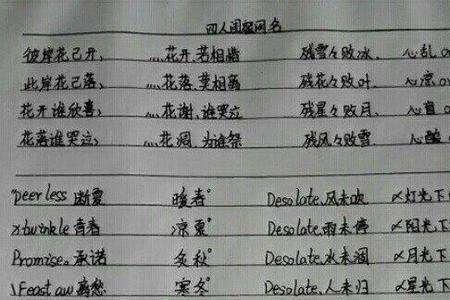 四人闺蜜网名
彼岸花已开、 ﹏花开、若相惜 残雪々败冰、 心乱
此岸花已落、 ﹏花落、莫相离 残花々败叶、 心凉
花开谁欣喜、 ﹏花谢、谁哭泣 残星々败月、 心
花落谁哭泣、 ﹏花凋、为谁祭 残风々败雪 心酸
Peerless 断夏 暖春° Desolate、风未吹 〆灯光下
xtwinkle 青春 凉夏° Desolate、雨未停 〆阳光下
Promise。承诺 冬秋° Desolate、水未涸 〆月光下
\Feast aw 离愁 寒冬° Desolate、人未归 〆星光下